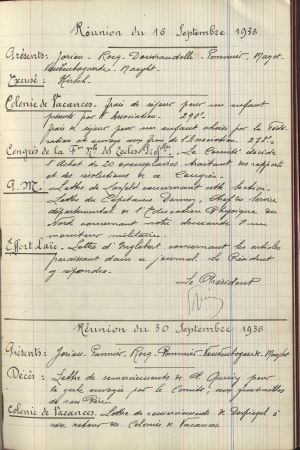 Réunion du 16 Septembre 1936
Présents: Jorieu - Rocq - Dourandelle - Pommier, Mayet -
Vantenbaguerde - Maeght.
Excusé: Hersch.
Colonie de Vacances. Frais de séjour pour un enfant
présenté par l'Association. 298f.
Frais de séjour pour un enfant choisi par la
et envoyé aux frais de l'association. 275f.
Congrès de la des Le Comité décide
l'achat de 20 exemplaires traitant des rapports
et des résolutions de ce Congrès.
P.M. Lettre de concernant cette Section.
Lettre du Capitaine chef du Service
départemental de l'Education Physique du
Nord concernant notre demande d'un
moniteur militaire.
Effort Laïc. Lettre d'Inglebert concernant les articles
paraissant dans ce journal. Le Président
y répondra.
Le Président
Réunion du 30 Septembre 1936
Présents: Jorieu - Pannier, Rocq - Pommier - - Maeght.
Décès: Lettre de remerciements de pour
la carte envoyée par le Comité, aux funérailles
de son Père.
Colonie de Vacances. Lettre de remerciements de
à son retour des Colonies de Vacances